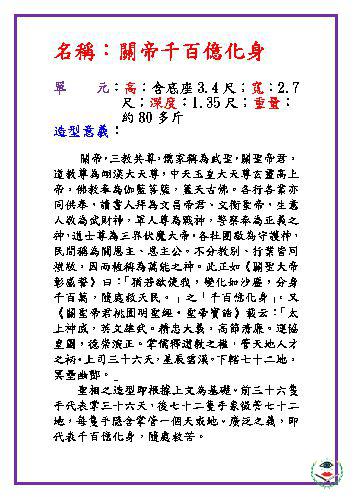 名稱：關帝千百億化身
單　元：高：含底座3.4尺；寬：2.7
尺；深度：1.35尺；重量：
約80多斤
造型意義：
關帝，三教共尊，儒家稱為武聖，關聖帝君，
道教尊為翊漢大天尊，中天玉皇大天尊玄靈高上
帝，佛教奉為伽藍菩薩，蓋天古佛。各行各業亦
同供奉，讀書人拜為文昌帝君、文衡聖帝，生意
人敬為武財神，軍人尊為戰神，警察奉為正義之
神，道士尊為三界伏魔大帝，各社團敬為守護神，
民間稱為關恩主、恩主公。不分教別、行業皆同
禮敬，因而被稱為萬能之神。此正如《關聖大帝
彰威譽》曰：「
千百萬，隨處救天民。」之「千百億化身」。又
《關聖帝君桃園明聖經。聖帝寶誥》載云：「太
上神威，英文雄武。精忠大義，高節清廉。運協
皇圖，德崇演正。掌儒釋道教之權，管天地人才
之柄。上司三十六天，星辰雲漢。下轄七十二地，
冥壘幽酆。」
聖相之造型即根據上文為基礎。前三十六隻
手代表掌三十六天，後七十二隻手象徵著七十二
地，每隻手隱含掌管一個天或地。廣泛之義，即
代表千百億化身，隨處救苦。